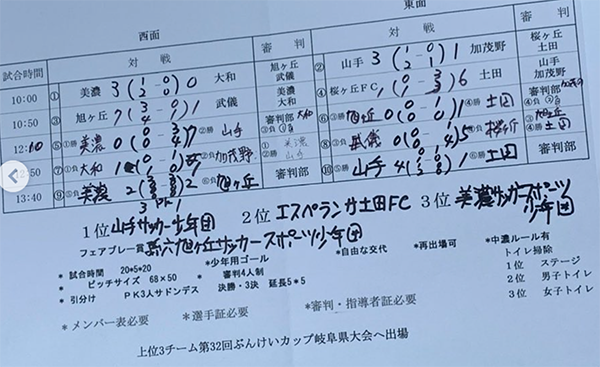 西面 東面
試合時間 対戦 審判 対戦 審判
10:00 ① 美濃 3 (1-0 2-0) 0 大和 旭ヶ丘 武儀 ② 山手 3 (1-0 2-1) 1 加茂野 桜ヶ丘 土田
10:50 ③ 旭ヶ丘 7 (3-0 4-1) 1 武儀 美濃 大和 ④ 桜ヶ丘FC 1 6 土田 山手 加茂野
12:10 ⑤ ①勝 美濃 0 7 ②勝 山手 審判部 ⑥ ③勝 旭ヶ丘 0 1 ④勝 土田
50 ⑦ ①負 大和 1 ②負 加茂野 美濃 山手 ⑧ ③負 武儀 0 5 桜ヶ丘
13:40 ⑨ 美濃 2 2 旭ヶ丘 審判部 ⑩ ⑤勝 山手 4 1 ⑥勝 土田 審判部
3 PK 1
1位 山手サッカー少年団 2位 エスペランサ土田FC 3位 美濃サッカースポーツ少年団
フェアプレー賞 旭ヶ丘サッカースポーツ少年団
* 試合時間 20*5*20 *少年用ゴール *自由な交代 *再出場可 *中濃ルール有
* ピッチサイズ 68×50 * 審判4人制 トイレ掃除
* 引分け PK3人サドンデス 決勝・3決 延長5*5 1位 ステージ
2位 男子トイレ
3位 女子トイレ
*メンバー表必要 *選手証必要 *審判・指導者証必要
上位3チーム第32回ぶんけいカップ岐阜県大会へ出場